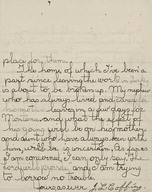 place for them.
The home of which I've been a
part since leaving the work in
is about to be broken up. My nephew
who has always lived and
leaves in a few days for
Montana, and what the effect of
his going will be on his mother
and aunt who have always been with
him, will be is uncertain. As far as
I am concerned, I can only say, the
and I am trying
to borrow no trouble.
Yours as ever J. L. Coffin